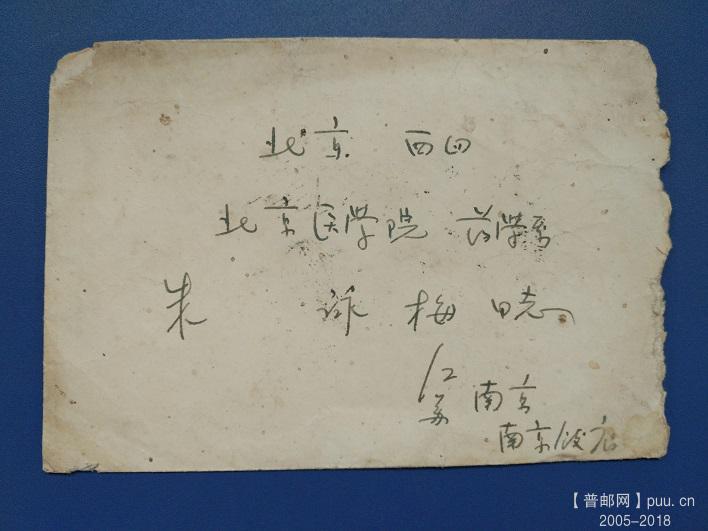 北京 西四
北京医学院 药学系
朱 詠 梅 同志
江苏 南京
南京饭店
【普邮网】puu.cn
2005-2018